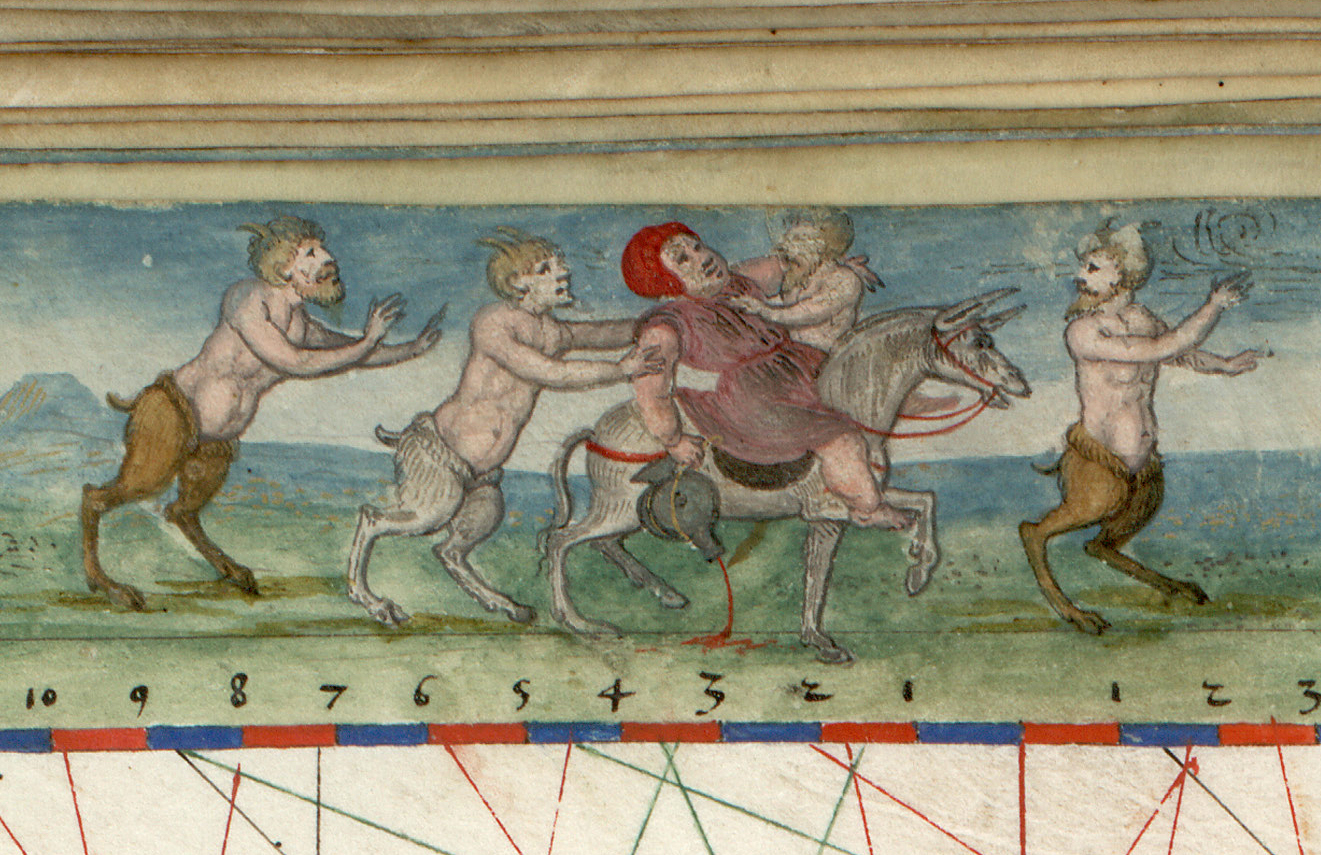 10 9 8 7 6 5 4 3 2 1 1 2 3